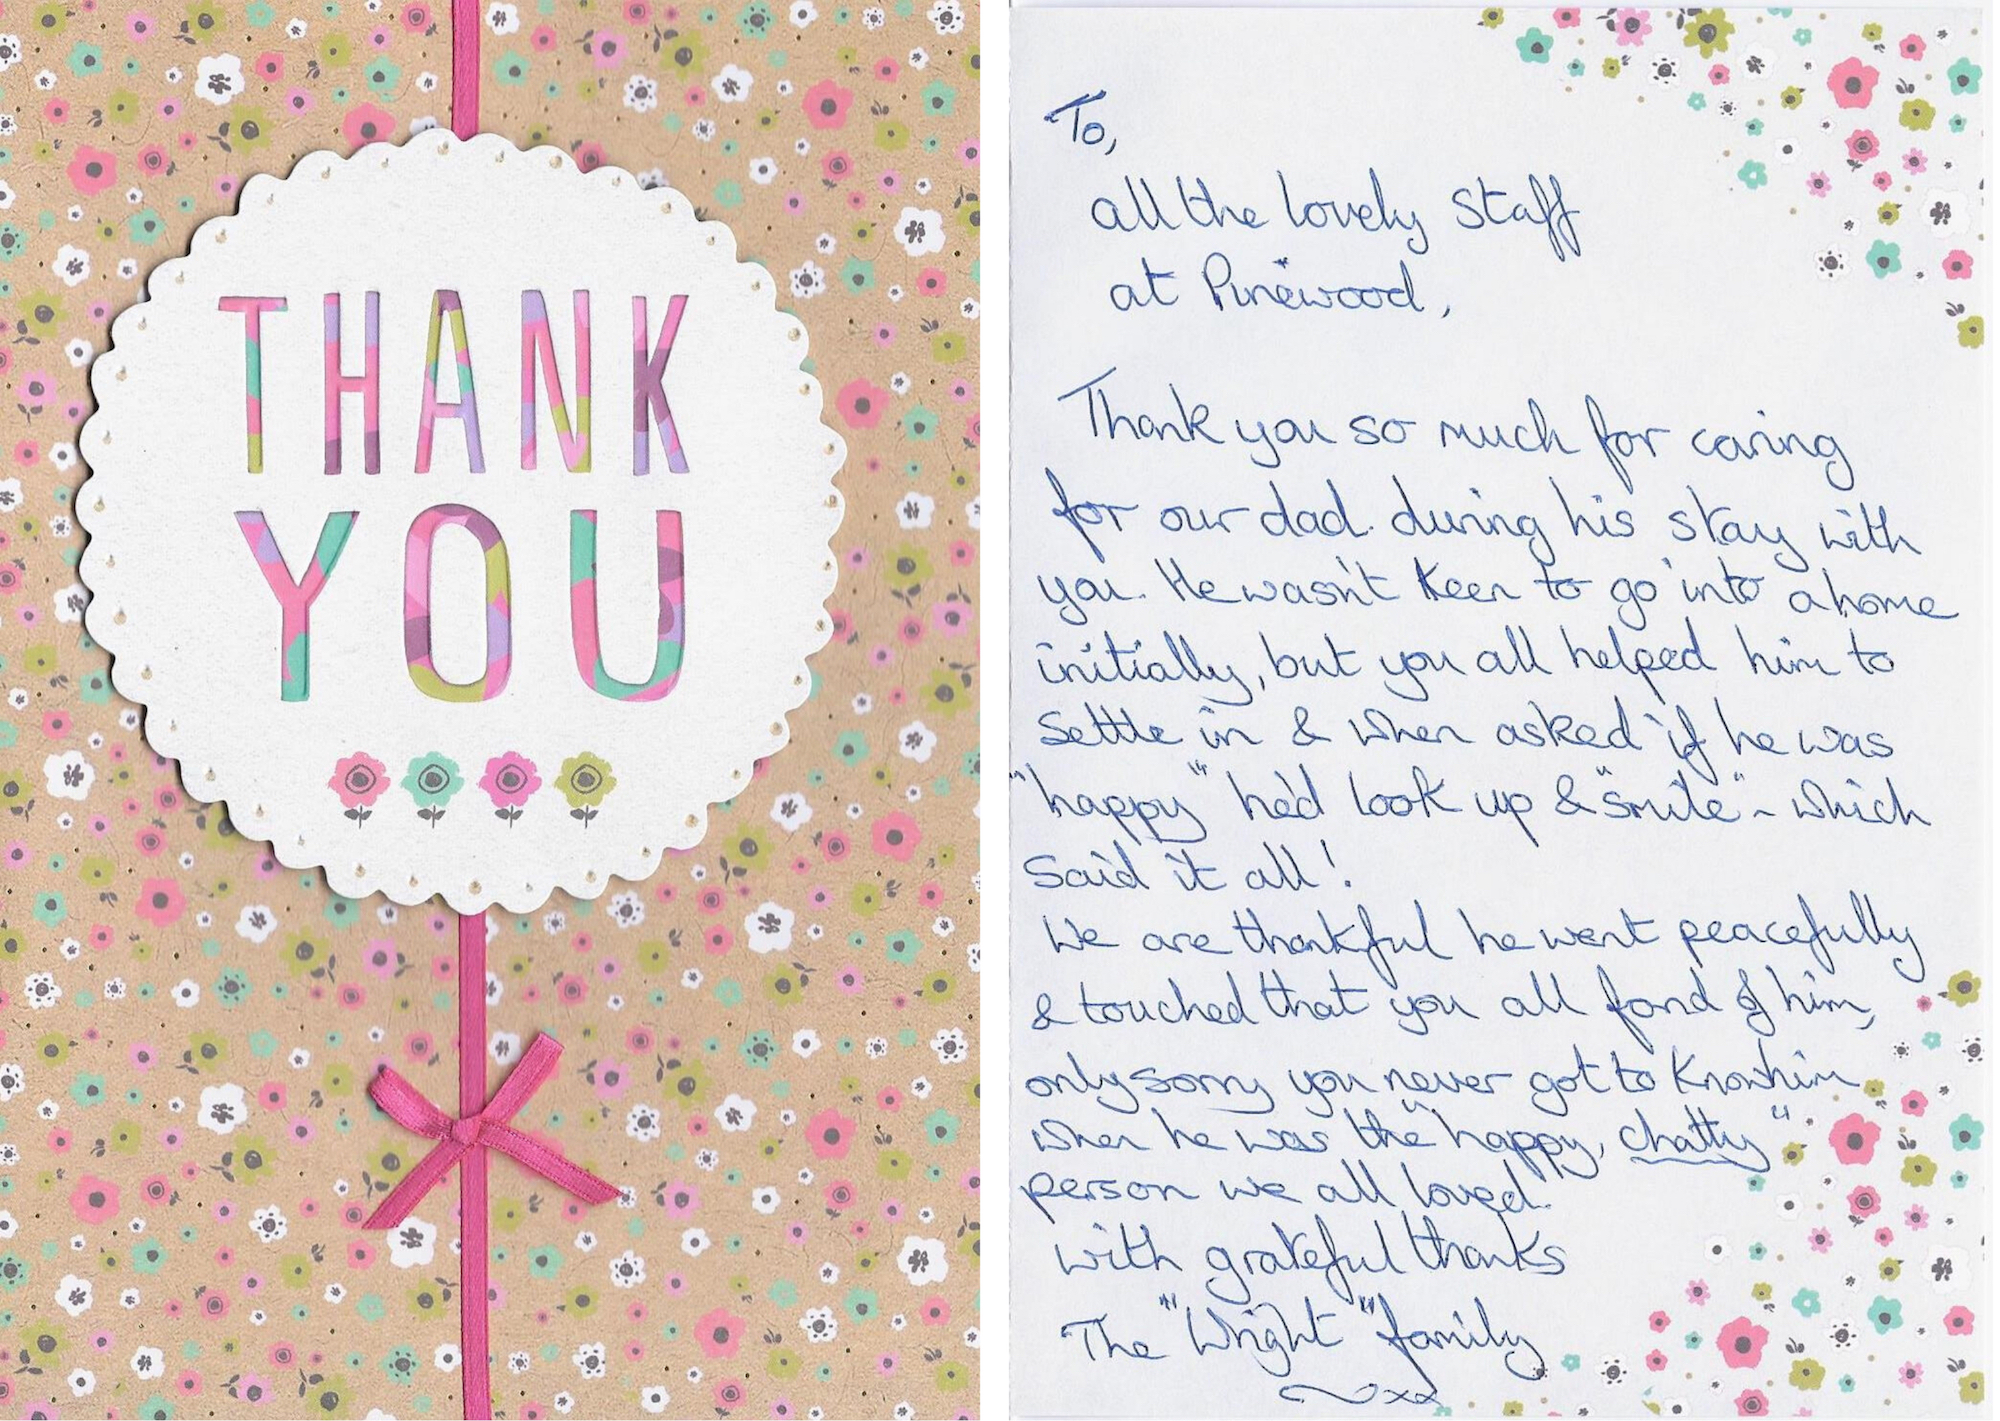 THANK
YOU
To,
all the lovely staff
at Pinewood,
Thank you so much for caring
for our dad during his stay with
you. He wasn't keen to go into a home
initially, but you all helped him to
settle in & when asked if he was
"happy" he'd look up & "smile" - which
said it all!
We are thankful he went peacefully
& touched that you all fond of him,
only sorry you never got to know him
when he was the "happy, chatty"
person we all loved.
with grateful thanks
The "Wright" family
xx